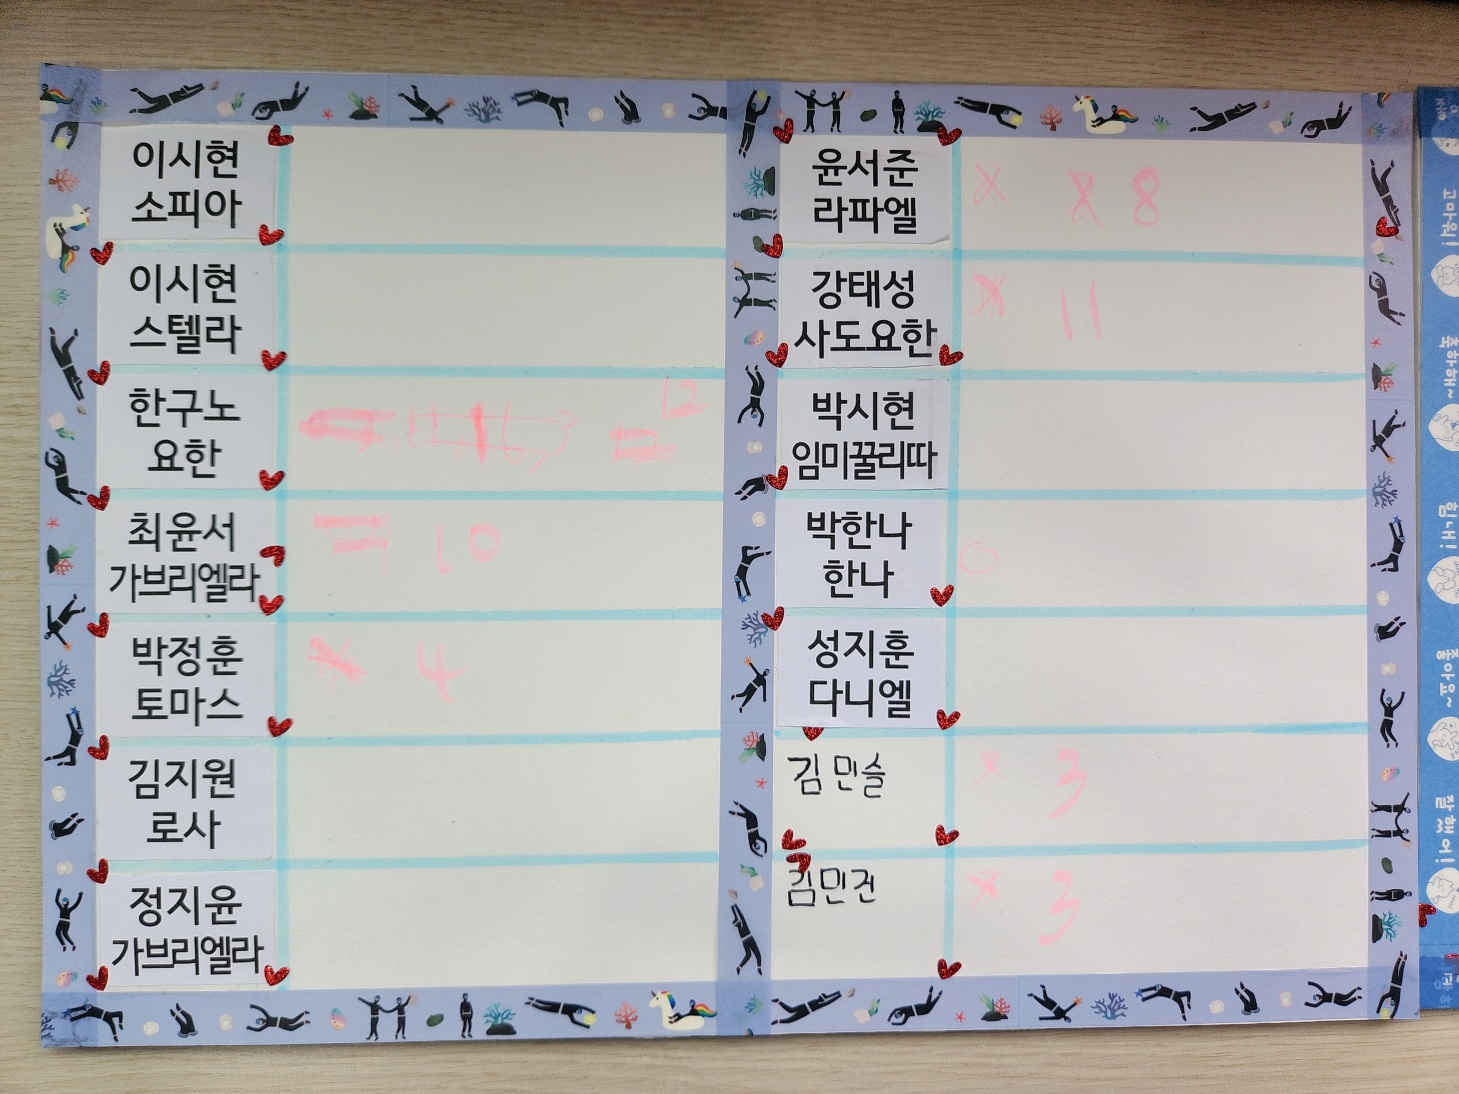 이시현
소피아
이시현
스텔라
한구노
요한
= 12
최윤서
가브리엘라
= 10
박정훈
토마스
× 4
김지원
로사
정지윤
가브리엘라
윤서준
라파엘
× × 8
강태성
사도요한
× 11
박시현
임미꿀리따
박한나
한나
0
성지훈
다니엘
김민슬
× 3
김민건
× 3
고마워!
축하해~
힘내!
좋아요~
잘했어!